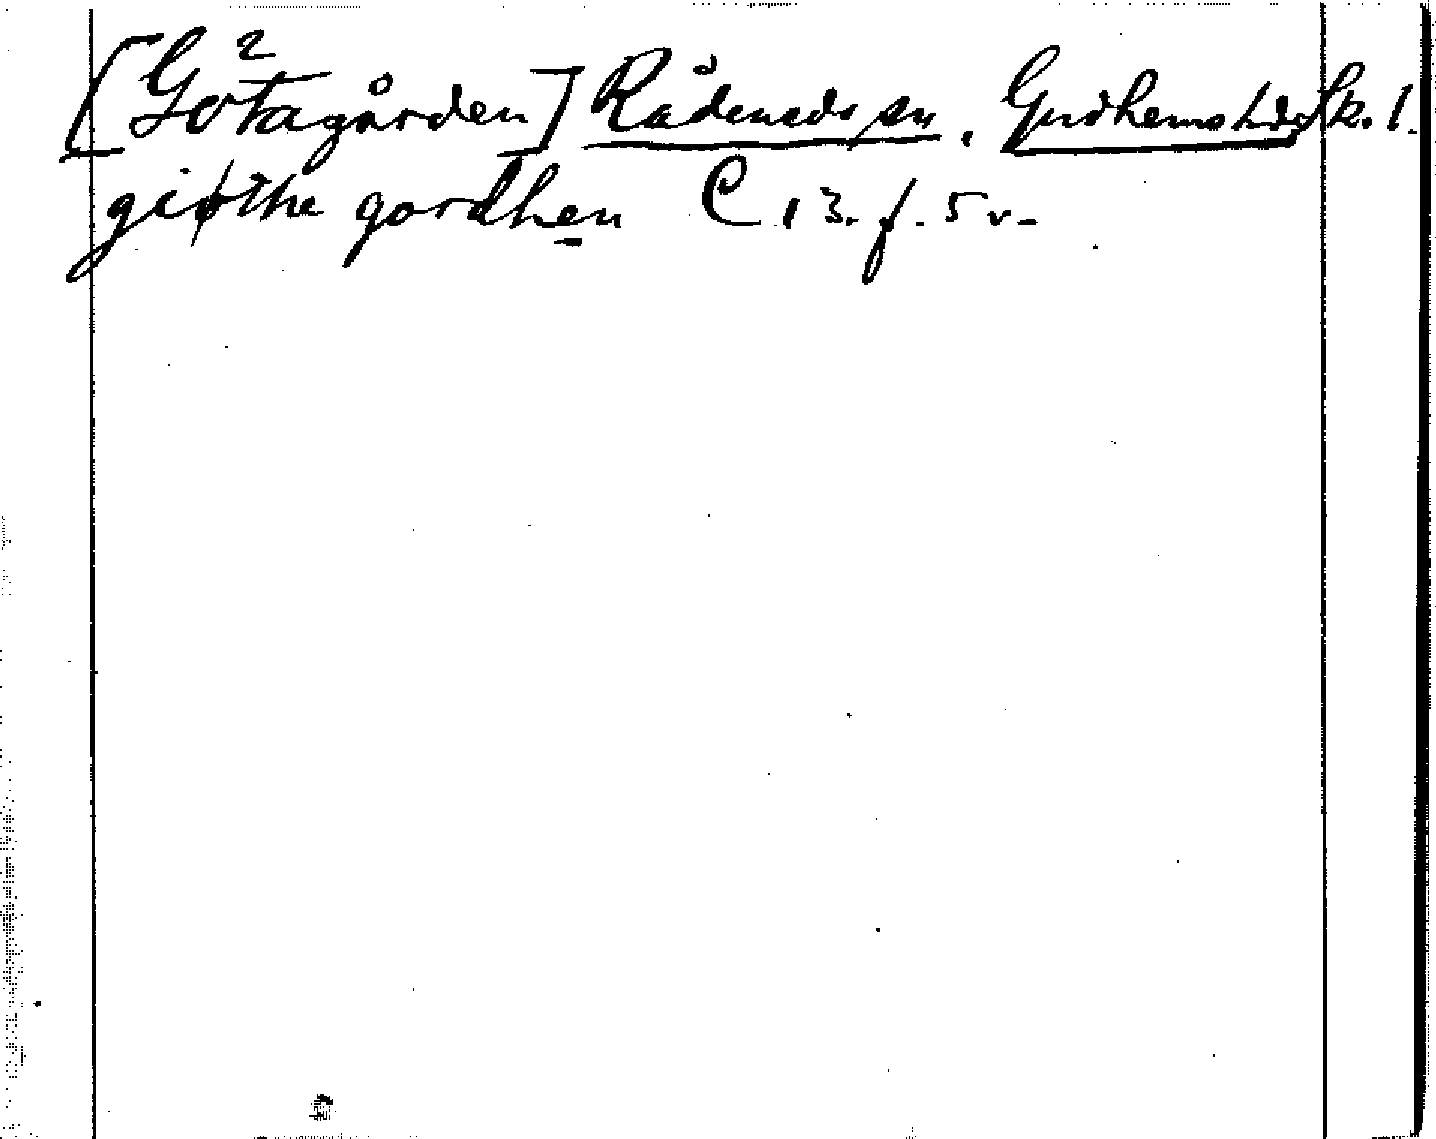 [Götagården] Rådeneds sn. Gudhems hd Sk. l.
giøthe gordhen C 13. f. 5 v.